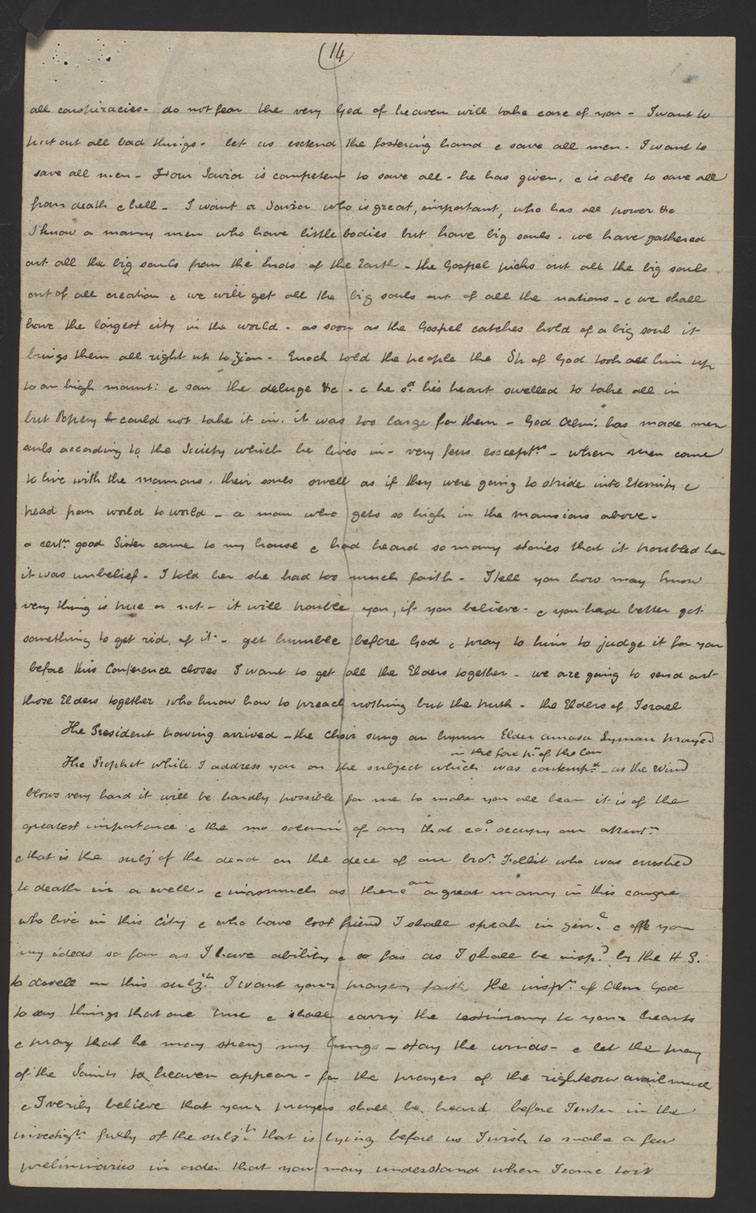 (14)
all conspiracies - do not fear the very God of heaven will take care of you - I want to
put out all bad things - let us extend the fostering hand & save all men - I want to
save all men - Our Savior is competent to save all - he has given, & is able to save all
from death & hell - I want a Savior who is great, important, who has all power &c
I know a many men who have little bodies but have big souls - we have gathered
out all the big souls from the Ends of the Earth - the Gospel picks out all the big souls
out of all creation & we will get all the big souls out of all the nations - & we shall
have the largest city in the world - as soon as the Gospel catches hold of a big soul it
brings them all right up to Zion - Enoch told the people the Sp of God took all him up
to an high mount: & saw the deluge &c - & he sd. his heart swelled to take all in
but Popery could not take it in. it was too large for them - God Almy. has made men
souls according to the Society which he lives in - very few exceptns - when men come
to live with the mormons. their souls swell as if they were going to stride into Eternity &
head from world to world - a man who gets so high in the mansions above -
a certn. good Sister came to my house & had heard so many stories that it troubled her
it was unbelief - I told her she had too much faith - I tell you how may know
very thing is true or not - it will trouble you, if you believe - & you had better get
something to get rid of it - get humble before God & pray to him to judge it for you
before this Conference closes I want to get all the Elders together - we are going to send out
those Elders together who know how to preach nothing but the truth - the Elders of Israel
The President having arrived - the Choir sung an hymn Elder Amasa Lyman prayed
in the fore pt. of the Con
The Prophet while I address you on the subject which was contempd - as the wind
blows very hard it will be hardly possible for me to make you all hear it is of the
greatest importance & the mo solemn of any that co. occupy our attentn
& that is the subj of the dead on the dece of our bror. Follit who was crushed
to death in a well - & inasmuch as there are a great many in this congre
who live in this City & who have lost friend I shall speak in genl. & offr you
my ideas so far as I have ability & so far as I shall be inspd. by the H S.
to dwell on this subjt. I want your prayers faith the inspn. of Alm God
to say things that are true & shall carry the testimony to your hearts
& pray that he may streng my lungs - stay the winds - & let the pray
of the Saints to heaven appear - for the prayers of the righteous avail much
& I verily believe that your prayers shall be heard before I enter in the
investign. fully of the subjt. that is lying before us I wish to make a few
preliminaries in order that you may understand when I come to it